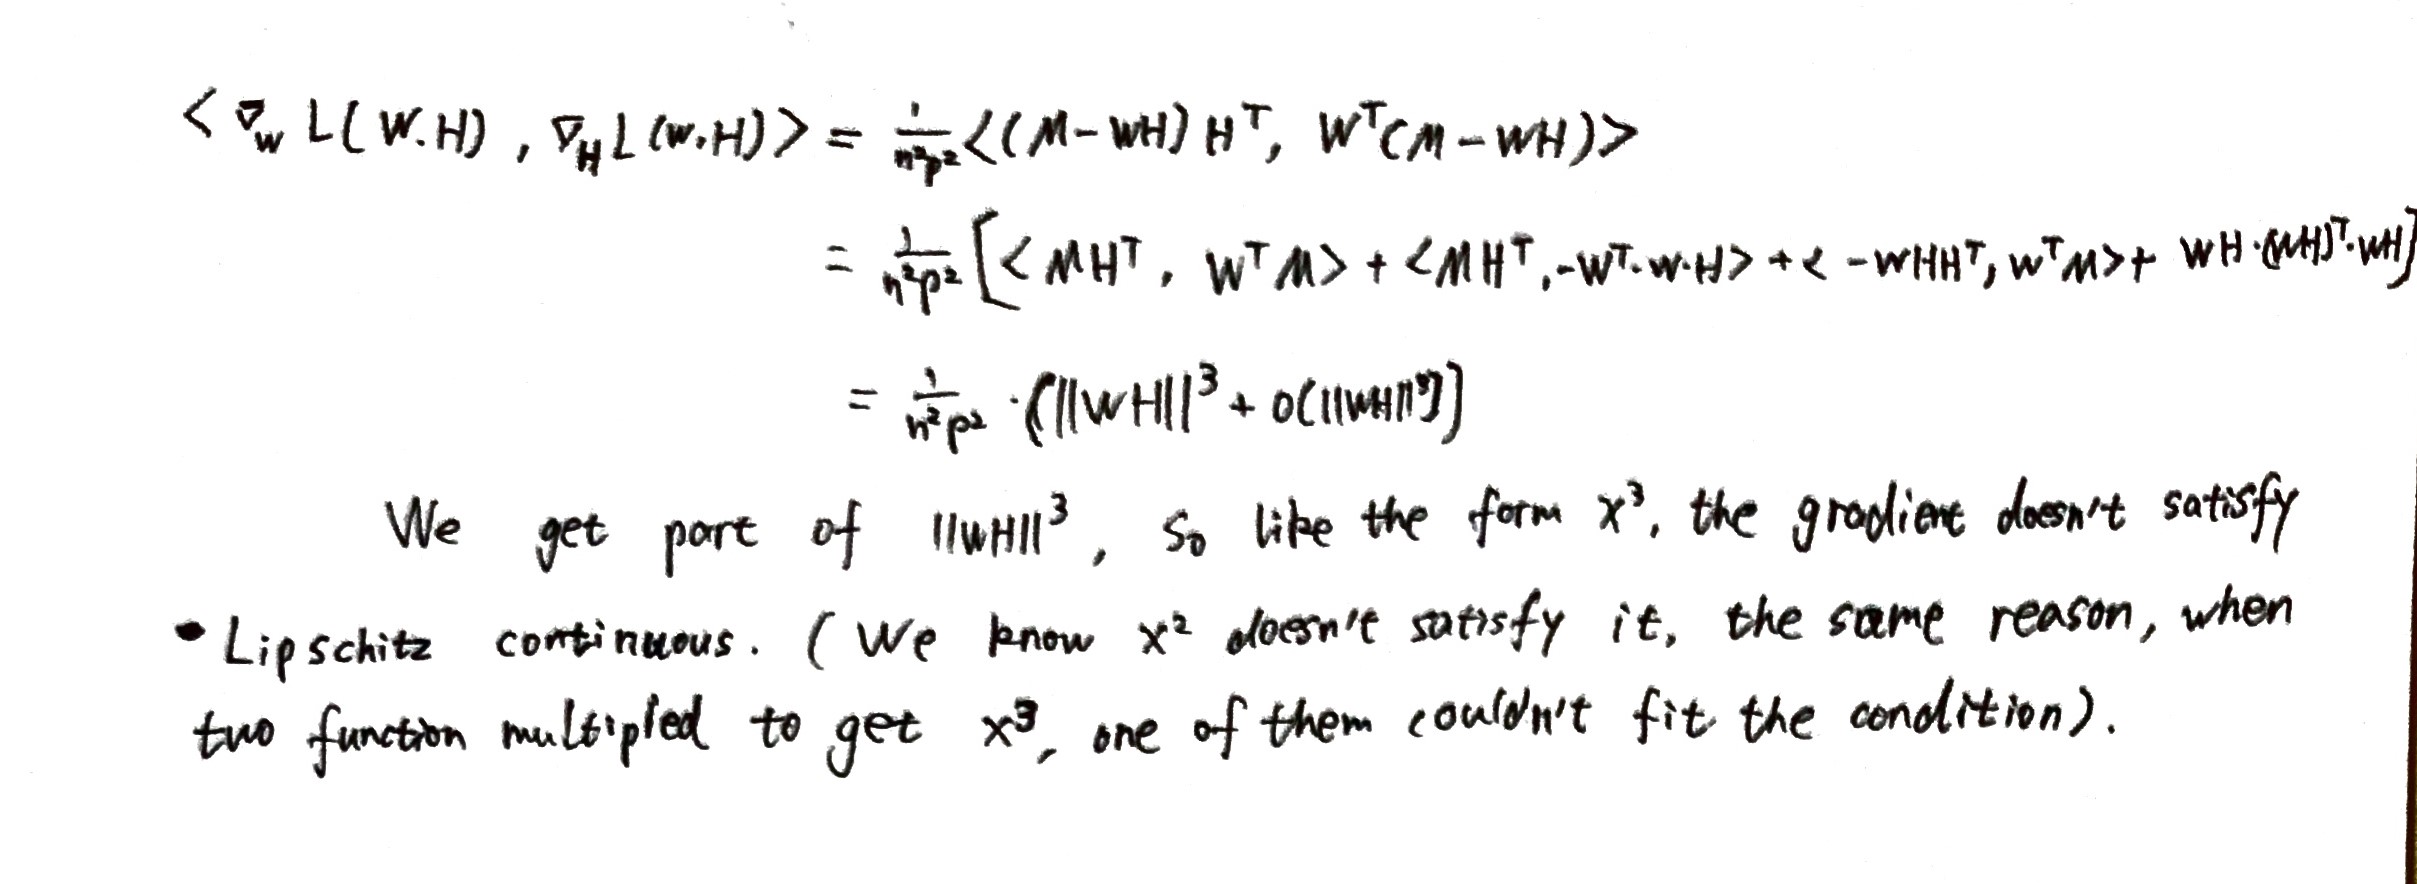 < ∇_W L(W.H) , ∇_H L(W.H)> = 1/(n²p²) <(M-WH) Hᵀ, Wᵀ(M-WH)>
= 1/(n²p²) [< MHᵀ, WᵀM> + <MHᵀ, -Wᵀ·W·H> + < -WHHᵀ, WᵀM> + WH·(WH)ᵀ·WH]
= 1/(n²p²) ·(||WH||³ + o(||WH||³))
We get part of ||WH||³, So like the form x³, the gradient doesn't satisfy
• Lipschitz continuous. ( We know x² doesn't satisfy it, the same reason, when
two function multipled to get x³, one of them couldn't fit the condition).